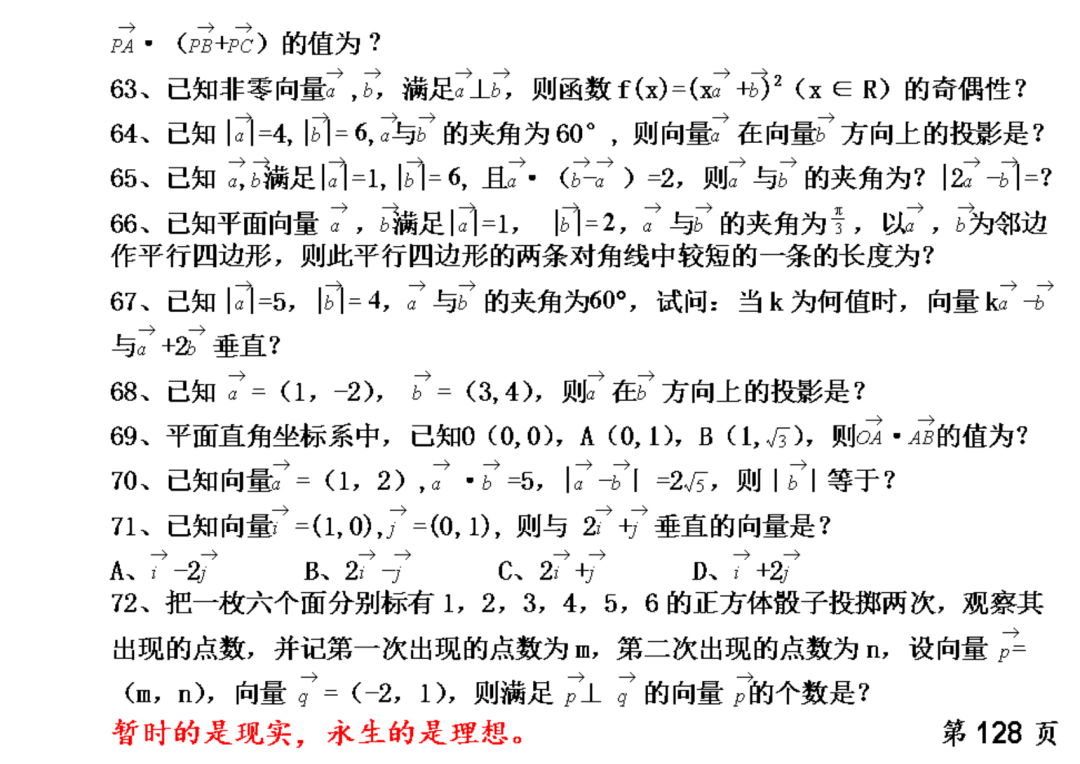 $\overrightarrow{PA}$·($\overrightarrow{PB}$+$\overrightarrow{PC}$)的值为?
63、已知非零向量$\vec{a}$,$\vec{b}$,满足$\vec{a}$⊥$\vec{b}$,则函数f(x)=(x$\vec{a}$+$\vec{b}$)²(x∈R)的奇偶性?
64、已知|$\vec{a}$|=4,|$\vec{b}$|=6,$\vec{a}$与$\vec{b}$的夹角为60°,则向量$\vec{a}$在向量$\vec{b}$方向上的投影是?
65、已知$\vec{a}$,$\vec{b}$满足|$\vec{a}$|=1,|$\vec{b}$|=6,且$\vec{a}$·($\vec{b}$-$\vec{a}$)=2,则$\vec{a}$与$\vec{b}$的夹角为?|2$\vec{a}$-$\vec{b}$|=?
66、已知平面向量$\vec{a}$,$\vec{b}$满足|$\vec{a}$|=1,|$\vec{b}$|=2,$\vec{a}$与$\vec{b}$的夹角为$\frac{π}{3}$,以$\vec{a}$,$\vec{b}$为邻边
作平行四边形,则此平行四边形的两条对角线中较短的一条的长度为?
67、已知|$\vec{a}$|=5,|$\vec{b}$|=4,$\vec{a}$与$\vec{b}$的夹角为60°,试问:当k为何值时,向量k$\vec{a}$-$\vec{b}$
与$\vec{a}$+2$\vec{b}$垂直?
68、已知$\vec{a}$=(1,-2),$\vec{b}$=(3,4),则$\vec{a}$在$\vec{b}$方向上的投影是?
69、平面直角坐标系中,已知O(0,0),A(0,1),B(1,√3),则$\overrightarrow{OA}$·$\overrightarrow{AB}$的值为?
70、已知向量$\vec{a}$=(1,2),$\vec{a}$·$\vec{b}$=5,|$\vec{a}$-$\vec{b}$|=2√5,则|$\vec{b}$|等于?
71、已知向量$\vec{i}$=(1,0),$\vec{j}$=(0,1),则与2$\vec{i}$+$\vec{j}$垂直的向量是?
A、$\vec{i}$-2$\vec{j}$ B、2$\vec{i}$-$\vec{j}$ C、2$\vec{i}$+$\vec{j}$ D、$\vec{i}$+2$\vec{j}$
72、把一枚六个面分别标有1,2,3,4,5,6的正方体骰子投掷两次,观察其
出现的点数,并记第一次出现的点数为m,第二次出现的点数为n,设向量$\vec{p}$=
(m,n),向量$\vec{q}$=(-2,1),则满足$\vec{p}$⊥$\vec{q}$的向量$\vec{p}$的个数是?
暂时的是现实,永生的是理想。 第128页